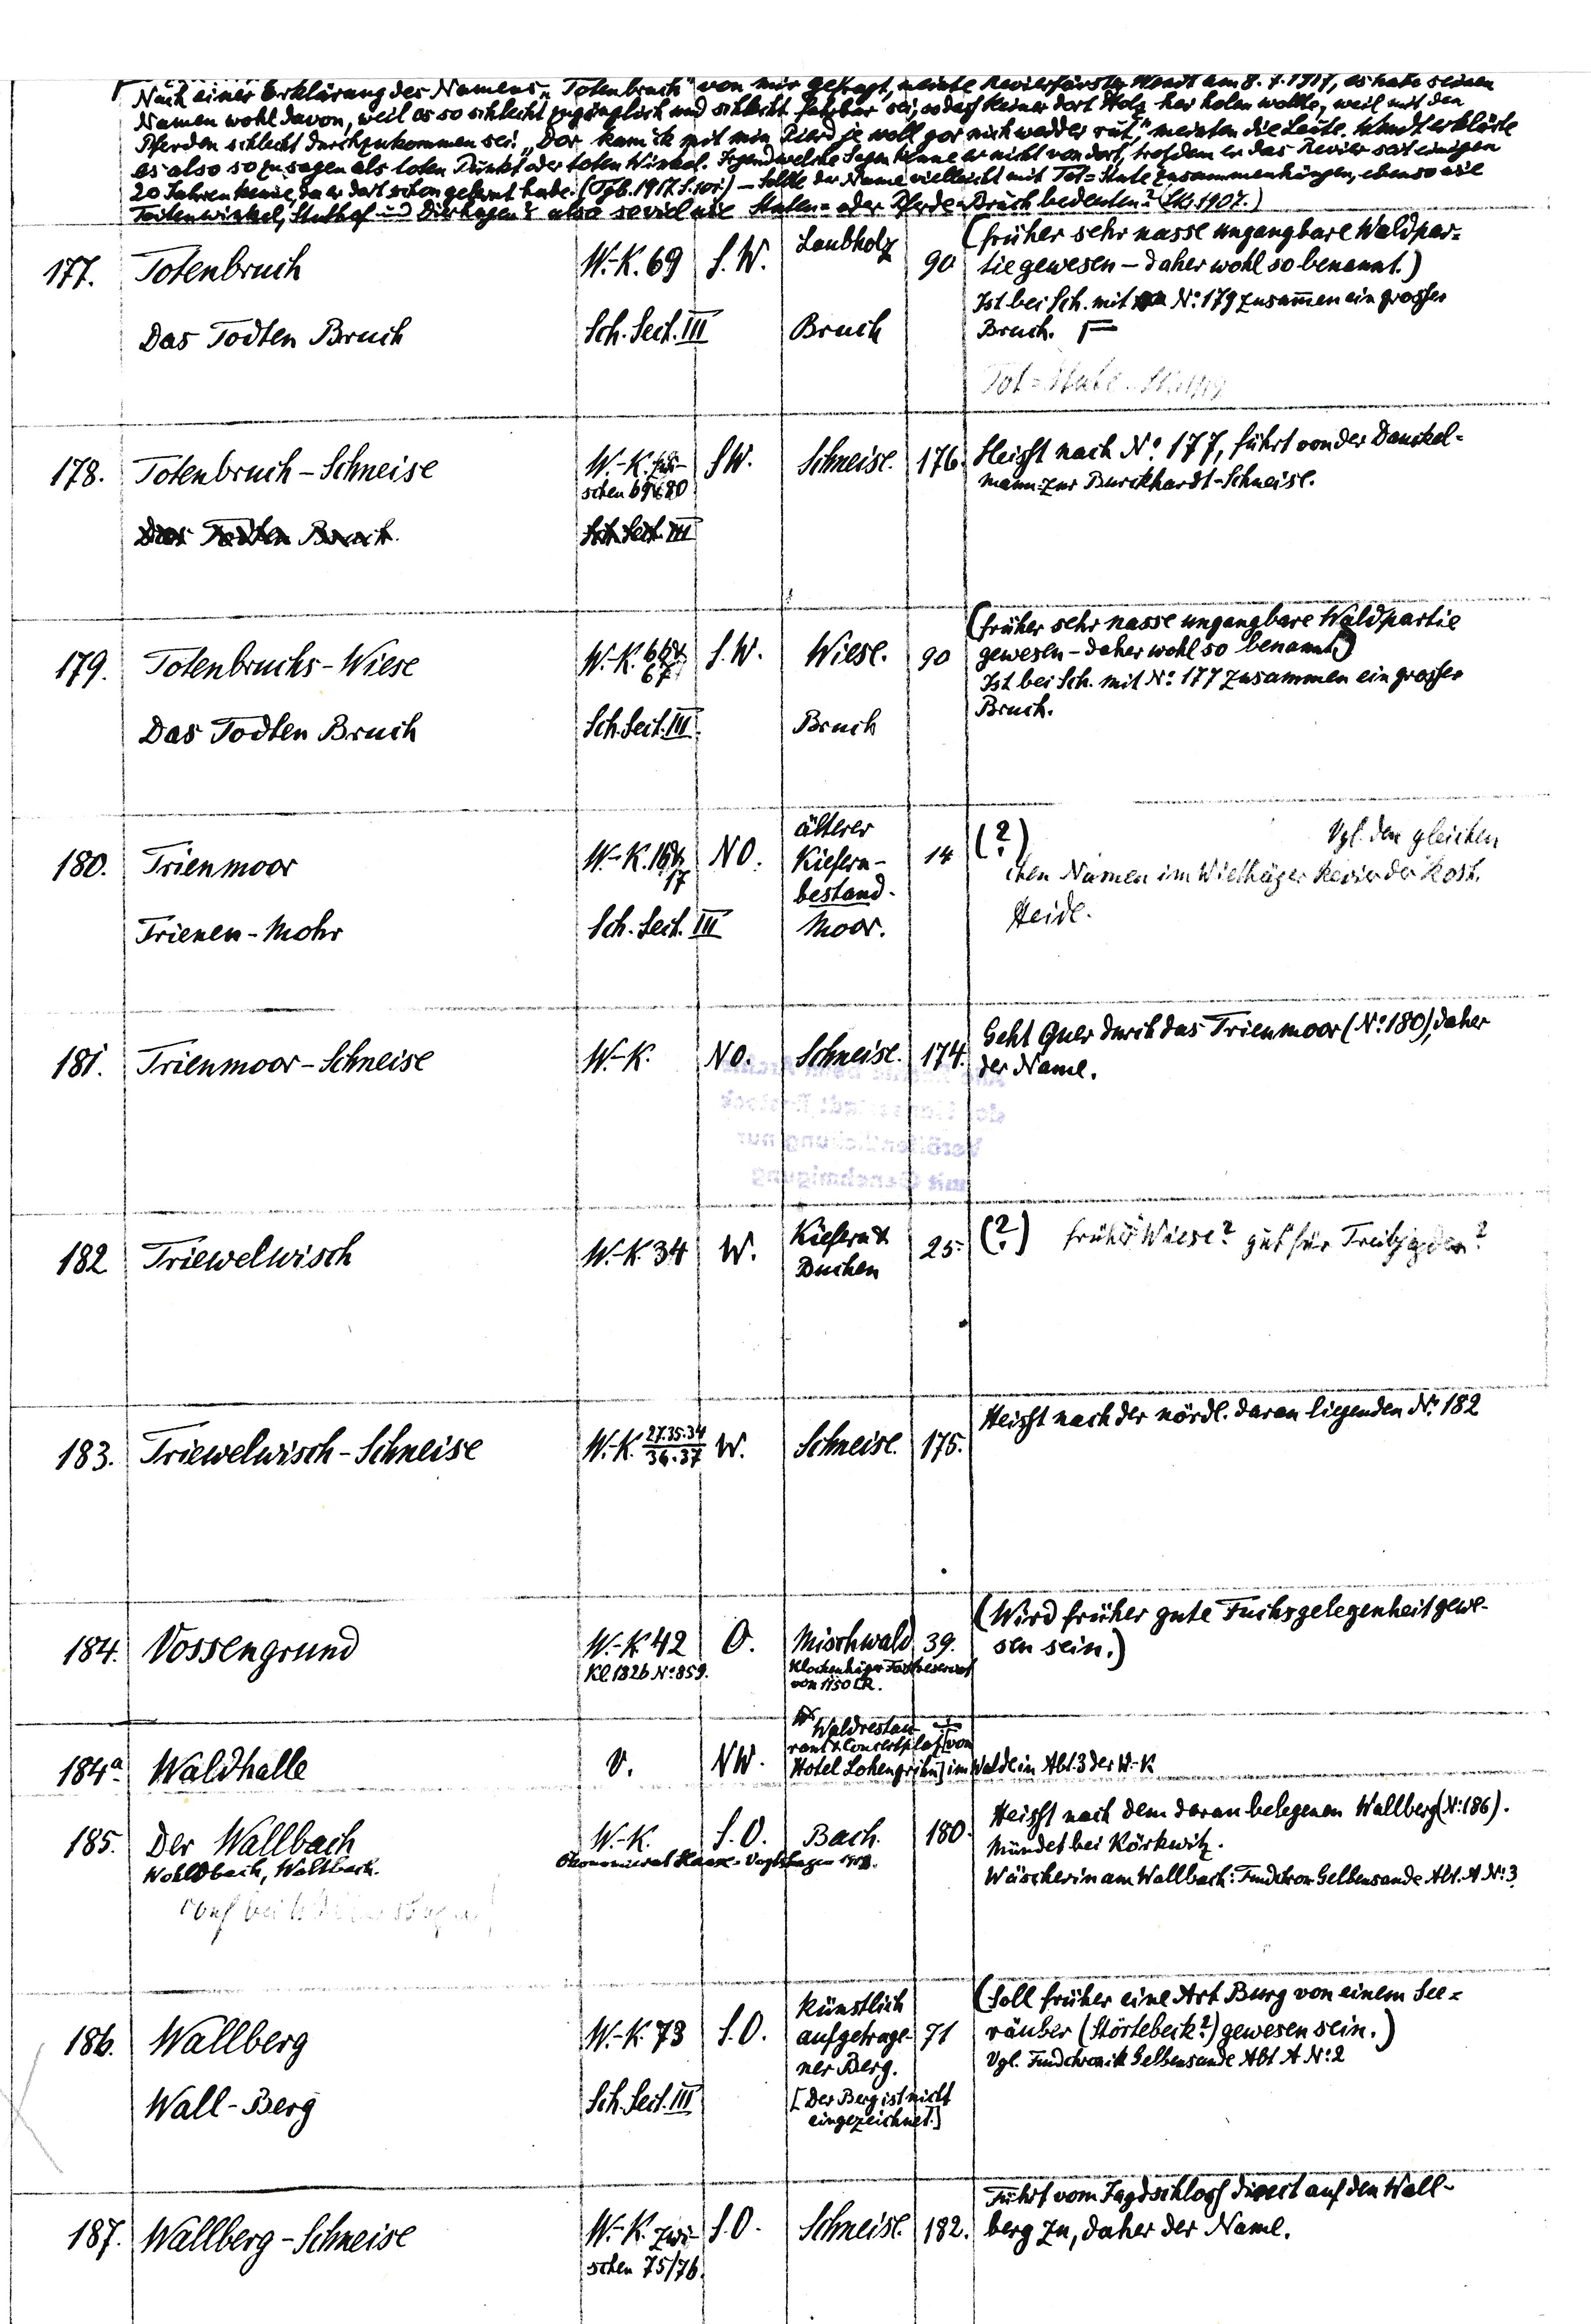 Nach einer Erklärung des Namens „Totenbruch" von mir gefragt, meinte Revierförster Wendt am 8.7.1917, es habe seinen
Namen wohl davon, weil es so schlecht zugänglich und schlecht fahrbar sei, sodass keiner dort Holz her holen wollte, weil mit den
Pferden schlecht durchzukommen sei. „Dor kam ik mit min Pierd je woll gor nich wedder rut," meinten die Leute. Wendt erklärte
es also so zu sagen als toten Punkt oder toten Winkel. Irgend welche Sagen kenne er nicht von dort, trotzdem er das Revier seit einigen
20 Jahren kenne, da er dort schon gelernt habe. (Tgb. 1917. S. 101.) – Sollte der Name vielleicht mit Tot = Stute zusammenhängen, ebenso wie
Toitenwinkel, Stuthof und Dierhagen? also soviel wie Stuten- oder Pferde-Bruch bedeuten? (1907.)
177. Totenbruch W.-K. 69 S.W. Laubholz 90 (früher sehr nasse ungangbare Waldpar=
tie gewesen – daher wohl so benannt.)
Ist bei Sch. mit N° 179 zusammen ein grosser
Das Todten Bruch Sch. Sect. III Bruch Bruch.
Tot = Stute
178. Totenbruch-Schneise W.-K. zwi- S.W. Schneise. 176. Heisst nach N° 177, führt von der Danckel=
schen 69 & 80 mann- zur Burckhardt-Schneise.
Das Todten Bruch. Sch. Sect. III
179. Totenbruchs-Wiese W.-K. 66 & 67 S.W. Wiese. 90 (früher sehr nasse ungangbare Waldpartie
gewesen – daher wohl so benannt.)
Ist bei Sch. mit N° 177 zusammen ein grosser
Das Todten Bruch Sch. Sect. III. Bruch Bruch.
180. Trienmoor W.-K. 16 & 17 NO. älterer 14 (?) Vgl. den gleichen
Kiefern- chen Namen im Wiethäger Revier der Rost.
bestand. Heide.
Trienen-Mohr Sch. Sect. III Moor.
181. Trienmoor-Schneise W.-K. NO. Schneise. 174. Geht quer durch das Trienmoor (N° 180), daher
der Name.
der Hansestadt Rostock
Veröffentlichung nur
mit Genehmigung
182 Triewelwisch W.-K. 34 W. Kiefern & 25. (?) früher Wiese? gut für Treibjagden?
Buchen
183. Triewelwisch-Schneise W.-K. 27.35.34 W. Schneise. 175. Heisst nach der nördl. daran liegenden N° 182
36.37
184. Vossengrund W.-K. 42 O. Mischwald 39. (Wird früher gute Fuchsgelegenheit gewe-
Kl. 1826 N° 859. sen sein.)
von 1150 □R.
184a. Waldhalle V. NW. Waldrestau-
rant & Concertplatz [vom
Hotel Lohengrin] im Walde in Abt. 3 der W.-K
185. Der Wallbach W.-K. S.O. Bach. 180. Heisst nach dem daran belegenen Wallberg (N° 186).
Wohldbach, Waltbach. Mündet bei Körkwitz.
Wäscherin am Wallbach: Fundchron Gelbensande Abt. A N° 3.
186. Wallberg W.-K. 73 S.O. Künstlich 71 (Soll früher eine Art Burg von einem See=
aufgetrage- räuber (Störtebeck?) gewesen sein.)
ner Berg. Vgl. Fundchronik Gelbensande Abt A N° 2
Wall-Berg Sch. Sect. III [Der Berg ist nicht
eingezeichnet.]
187. Wallberg-Schneise W.-K. zwi- S.O. Schneise. 182. Führt vom Jagdschloss direct auf den Wall-
schen 75/76. berg zu, daher der Name.